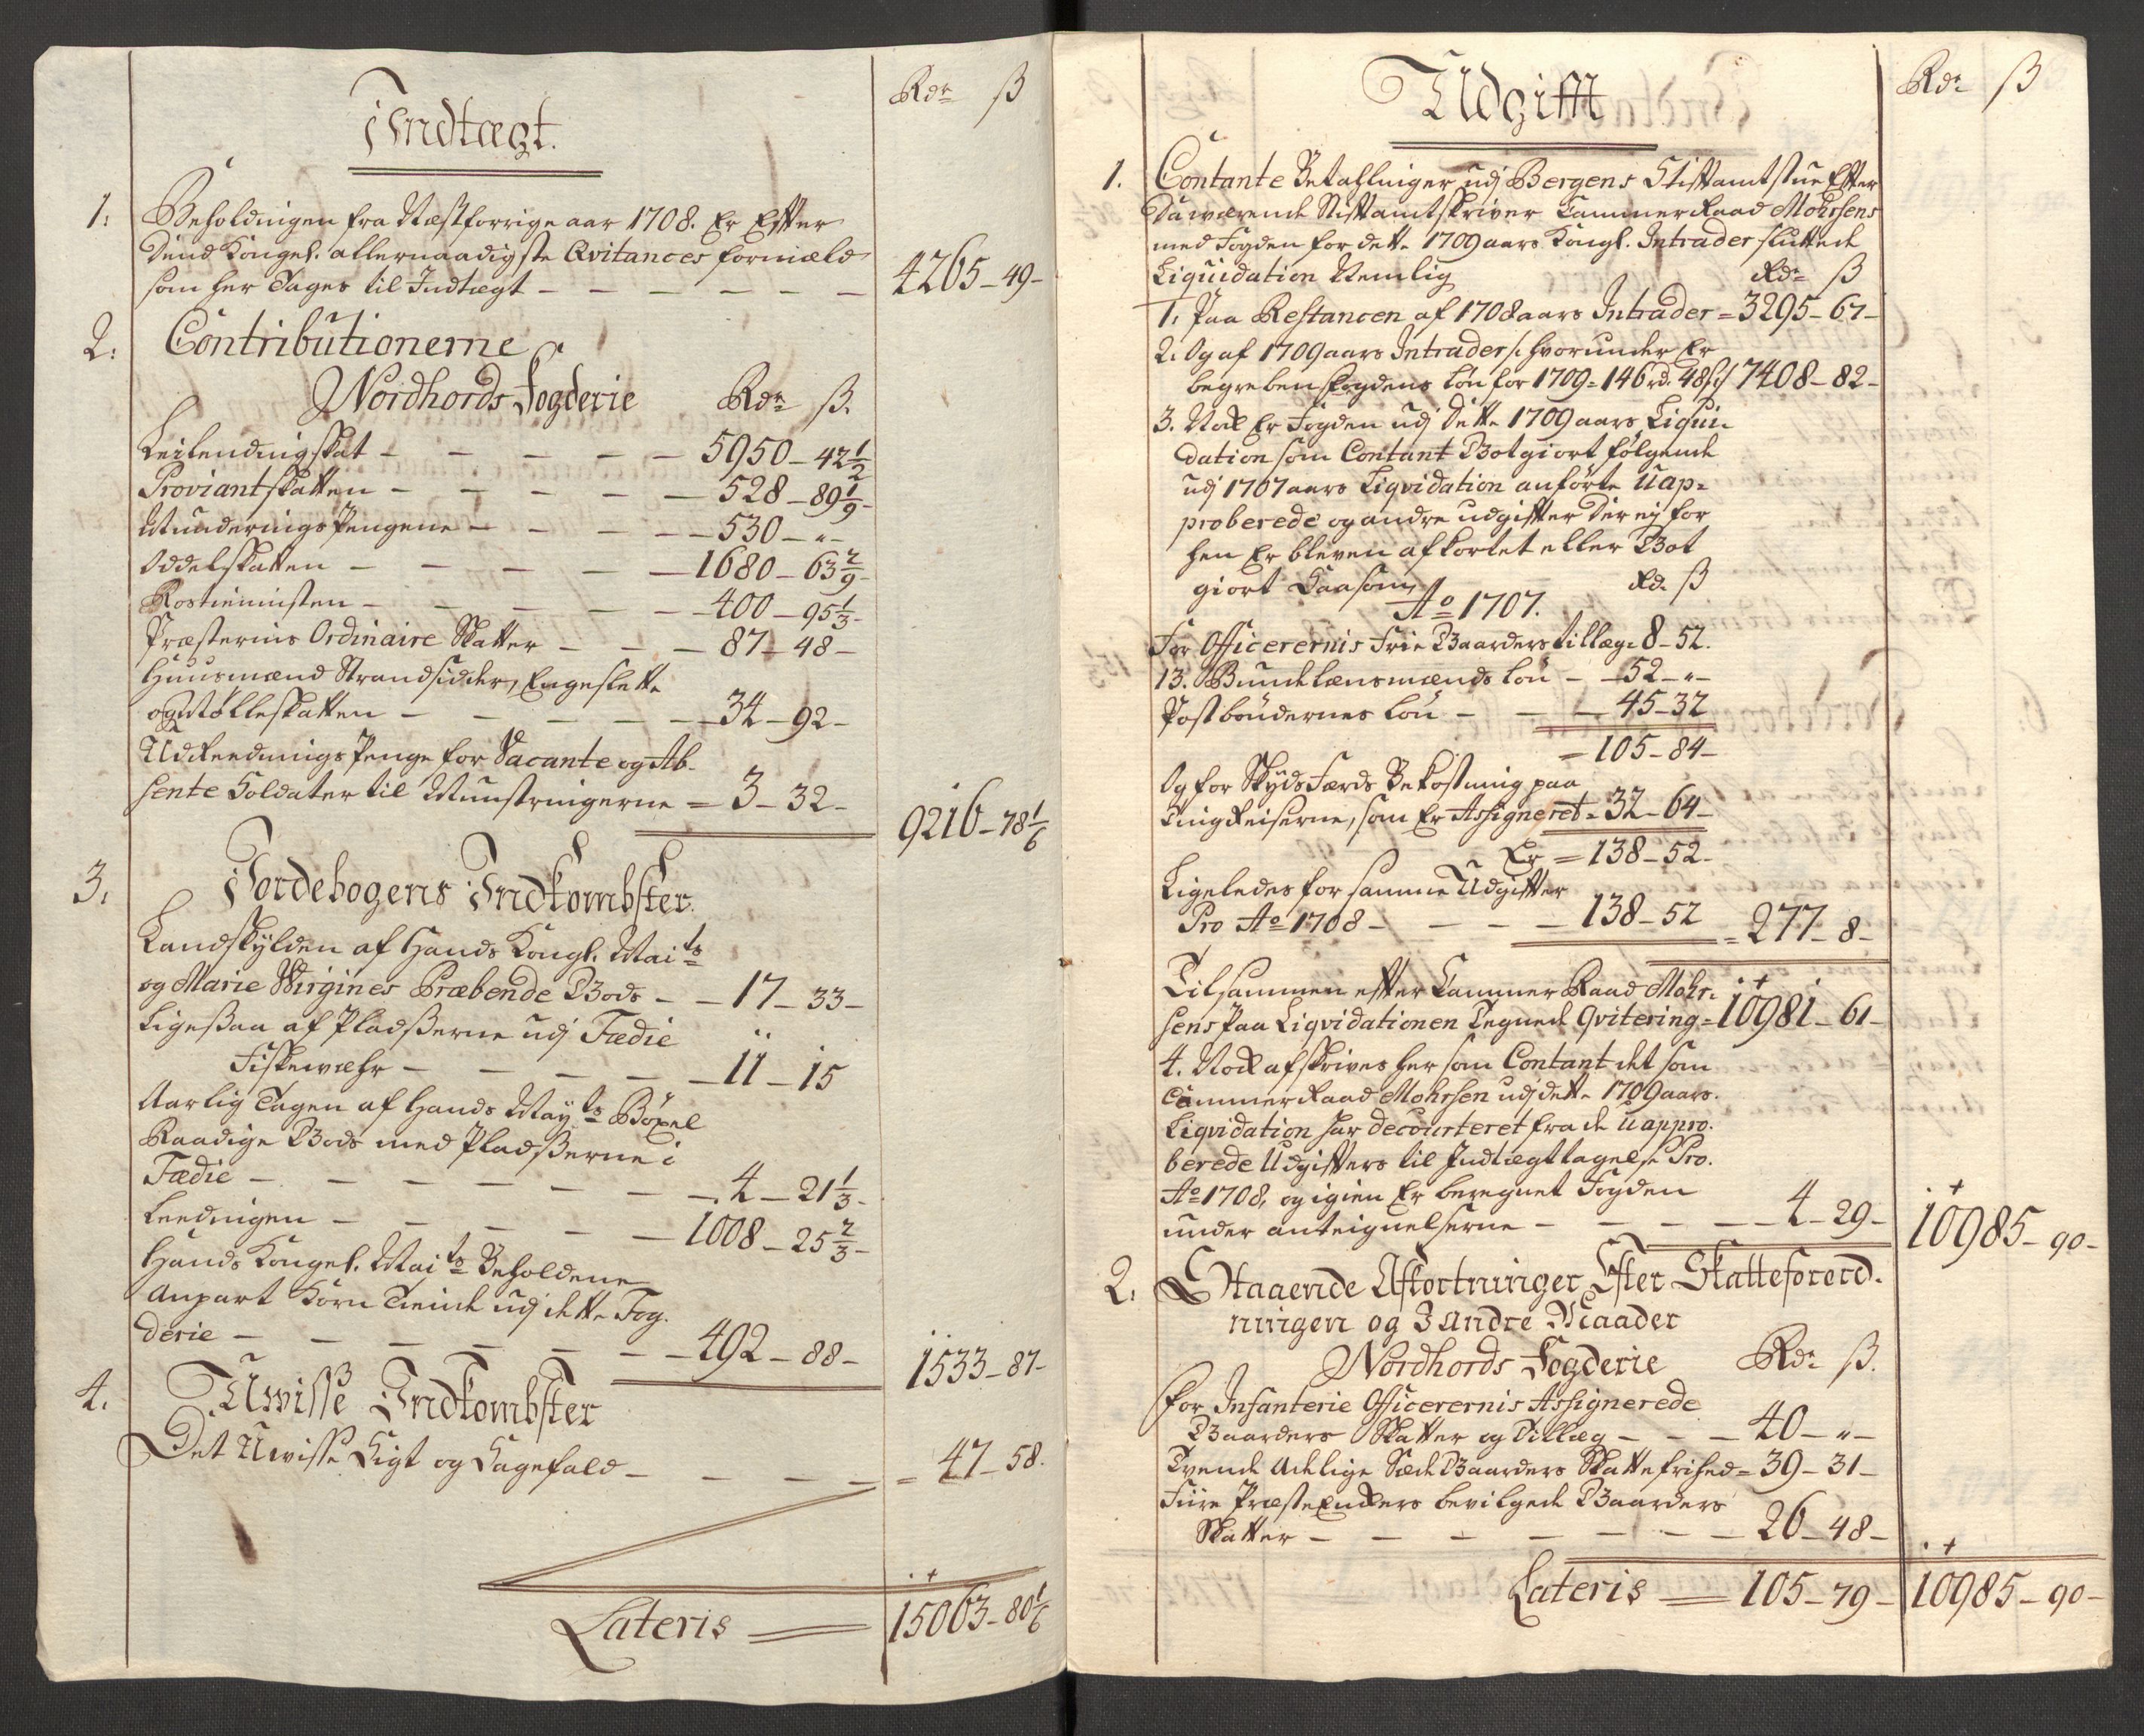 Indtægt.
Rdr ß
1. Beholdningen fra Næstforrige aar 1708. Er Efter
Dend Kongel. allernaadigste Qvitances formæld
som her Tages til Indtægt — — — — — — 4265 – 49 –
2. Contributionerne
Nordhords Fogderie Rdr ß.
Leilendingskat — — — — — 5950 – 42 1/2
Proviantskatten — — — — — 528 – 89 1/9 –
Munderings Pengene — — — — 530 – „ –
Oddelskatten — — — — — 1680 – 63 2/9 –
Rostienisten — — — — — 400 – 95 1/3 –
Præsternis Ordinaire Skatter — — — 87 – 48 –
Huusmænd Strandsidder, Engeslette
og Mølleskatten — — — — — 34 – 92 –
Udreednings Penge for Vacante og Ab-
sente Soldater til Munstringerne = 3 – 32 –
9216 – 78 1/6
3. Jordebogens Indkombster.
Landskylden af Hands Kongl. Maits
og Marie Virgines Præbende Gods — — 17 – 33 –
Ligesaa af Pladserne udj Fædie
Fiskewæhr — — — — — 11 – 15
Aarlig Tagen af Hands Mayts Böxel
Raadige Gods med Pladserne i
Fædie — — — — — — — 4 – 21 1/3 –
Leedingen — — — — — 1008 – 25 2/3 –
Hands Kongel. Maits Beholdene
Anpart Korn Tiende udj dette Fog-
derie — — — — — — 492 – 88 –
1533 – 87 –
4. Uwisse Indkombster
Det Uwisse Sigt og Sagefald — — — — = 47 – 58.
Lateris = 15063 – 80 1/6
Udgifft
Rdr ß
1. Contante Betallninger udj Bergens Stiftamtstue Efter
Da werende Stiftamtskriver Cammer Raad Mohrsens
med Fogden for dette 1709 aars Kongl. Intrader sluttede
Liquidation Nemlig Rdr ß
1. Paa Restancen af 1708 aars Intrader = 3295 – 67 –
2. Og af 1709 aars Intrader /: hvorunder Er
begreben Fogdens Løn for 1709 = 146 rd. 48 ß :/ 7408 – 82 –
3. Nok Er Fogden udj dette 1709 aars Liqui-
dation som Contant Got giort følgende
udj 1707 aars Liqvidation anförte Uap-
proberede og andre udgifter der ej for
hen Er bleven afkortet eller Got
giort Saasom, Rd. ß
Ao 1707.
For Officerernis Frie Gaarders tillæg = 8 – 52.
13. Bundelænsmænds Løn — 52 – „ –
Postböndernes Løn — — — 45 – 32
= 105 – 84 –
Og for Skyds Færds Bekostning paa
Ting Reiserne, som Er Assigneret = 32 – 64 –
Er = 138 – 52 –
Ligeledes for samme Udgifter
Pro Ao 1708 — — — — 138 – 52 = 277 – 8 –
Tilsammen efter Cammer Raad Mohr-
sens Paa Liqvidationen Tegnede Qvitering = 10981 – 61 –
4. Nok afskrives her som Contant det som
Cammer Raad Mohrsen udj dette 1709 aars
Liqvidation har decourteret fra de Uappro-
berede Udgifters til Indtægt tagelse Pro.
Ao 1708, og igien Er beregnet Fogden
under anteignelserne — — — — 4 – 29 –
10985 – 90 –
2. Staaende Afkortninger Efter Skatteforord-
ningen og J Andre Maader
Nordhords Fogderie Rdr ß.
For Infanterie Officerernis Assignerede
Gaarders Skatter og Tillæg — — — 40 – „ –
Tvende Adelige Sæde Gaarders Skattefrihed = 39 – 31 –
Fiire Præste Enkers bevilgede Gaarders
Skatter — — — — — — — 26 – 48 –
Lateris = 105 – 79 – 10985 – 90 –